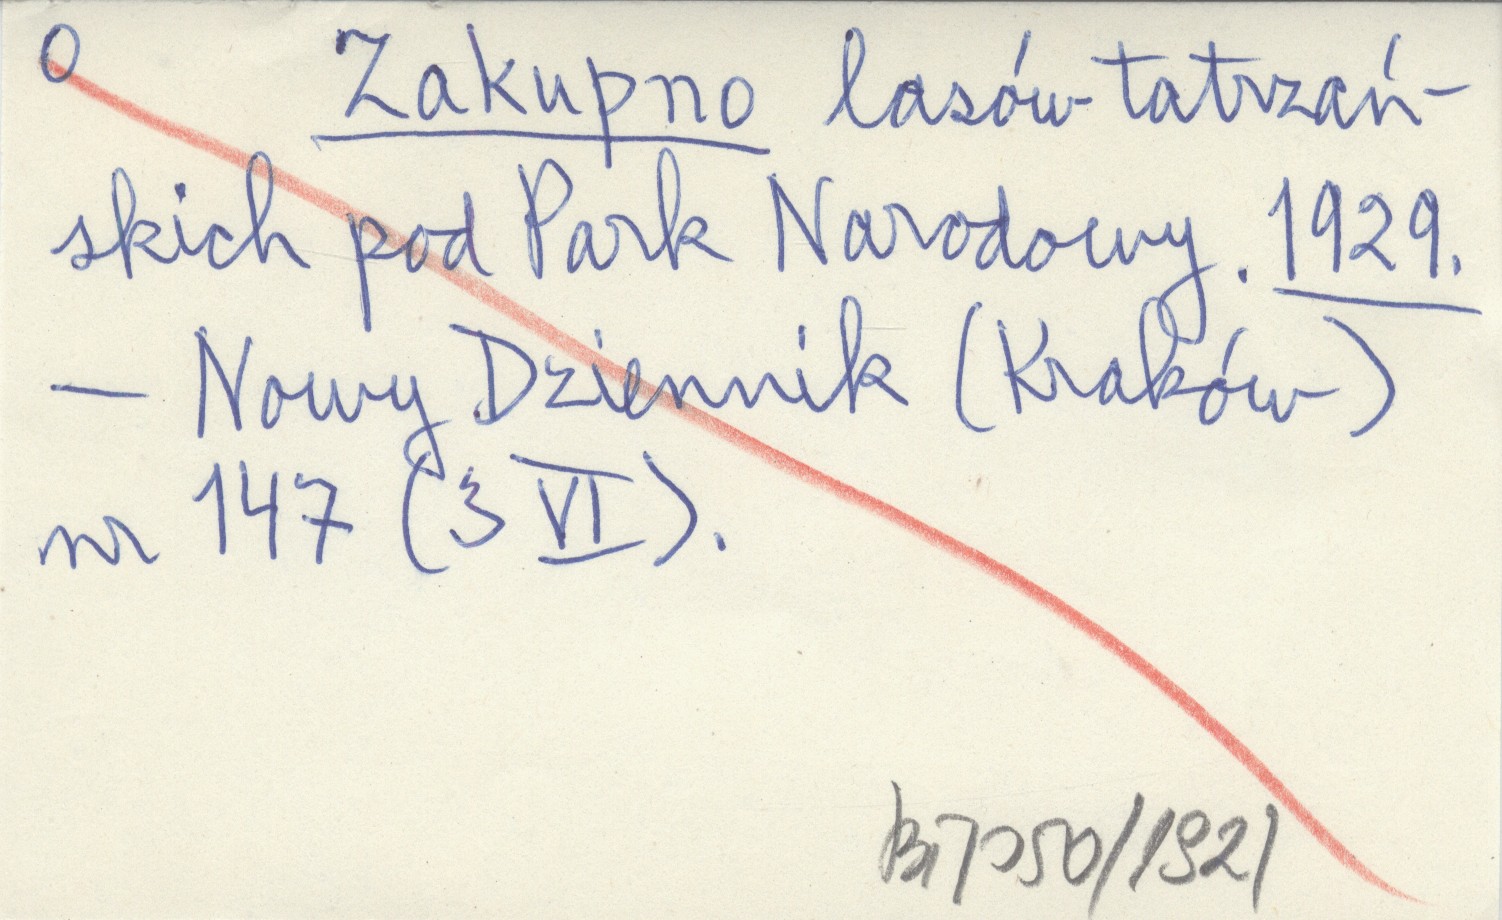 O Zakupno lasów tatrzań-
skich pod Park Narodowy. 1929.
— Nowy Dziennik (Kraków)
nr 147 (3 VI).